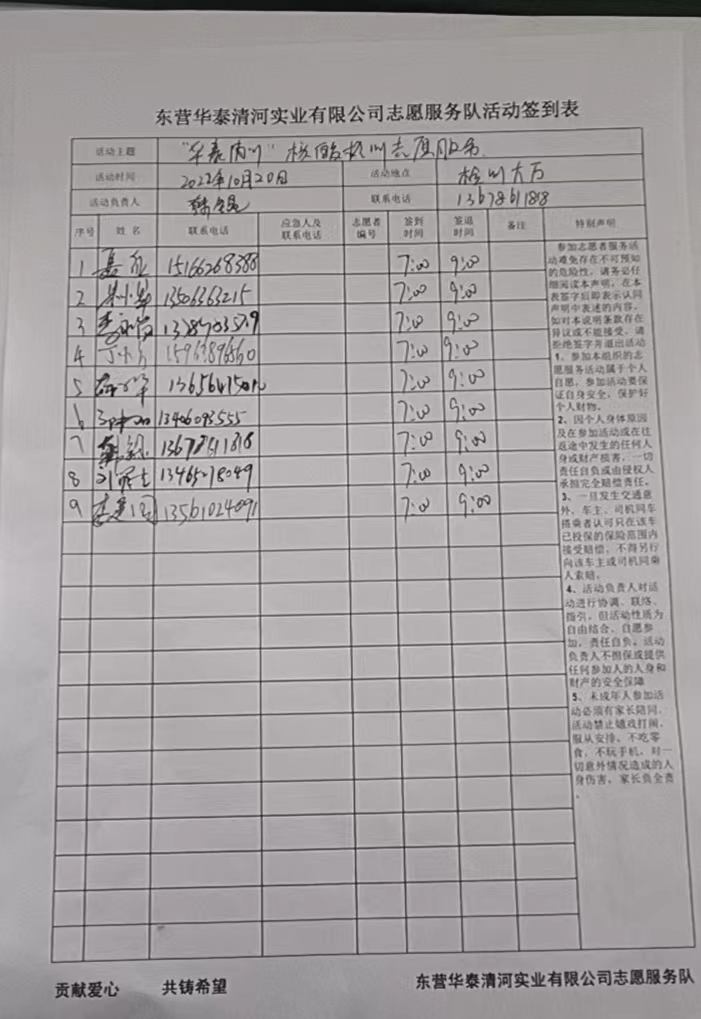 东营华泰清河实业有限公司志愿服务队活动签到表
活动主题 "华泰清河"核酸检测志愿服务
活动时间 2022年10月20日 活动地点 检测大厅
活动负责人 联系电话 13678611818
序号 姓名 联系电话 应急人及联系电话 志愿者编号 签到时间 签退时间 备注 特别声明
1 15166268388 7:00 9:00
2 13506363215 7:00 9:00
3 7:00 9:00
4 7:00 9:00
5 7:00 9:00
6 13406093555 7:00 9:00
7 7:00 9:00
8 13465218049 7:00 9:00
9 李建国 13561024091 7:00 9:00
参加志愿者服务活
动难免存在不可预知
的危险性，请务必仔
细阅读本声明，在本
表签字后即表示认同
声明中表述的内容，
如对本说明条款存在
异议或不能接受，请
拒绝签字并退出活动
1、参加本组织的志
愿服务活动属于个人
自愿，参加活动要保
证自身安全，保护好
个人财物。
2、因个人身体原因
及在参加活动或在往
返途中发生的任何人
身或财产损害，一切
责任自负或由侵权人
承担完全赔偿责任。
3、一旦发生交通意
外，车主、司机同车
搭乘者认可只在该车
已投保的保险范围内
接受赔偿，不得另行
向该车主或司机同乘
人索赔。
4、活动负责人对活
动进行协调、联络、
指引，但活动性质为
自由结合、自愿参
加，责任自负。活动
负责人不担保或提供
任何参加人的人身和
财产的安全保障
5、未成年人参加活
动必须有家长陪同，
活动禁止嬉戏打闹，
服从安排，不吃零
食，不玩手机，对一
切意外情况造成的人
身伤害，家长负全责
。
贡献爱心 共铸希望 东营华泰清河实业有限公司志愿服务队